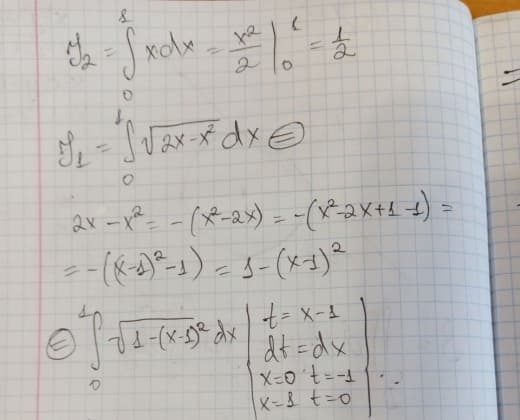 J₂ = ∫₀¹ xdx = x²/2 |₀¹ = 1/2
J₁ = ∫₀¹ √(2x-x²) dx ⊜
2x - x² = -(x²-2x) = -(x²-2x+1-1) =
= -((x-1)²-1) = 1-(x-1)²
⊜ ∫₀¹ √(1-(x-1)²) dx | t = x-1
dt = dx
x=0 t=-1
x=1 t=0 | ..
=